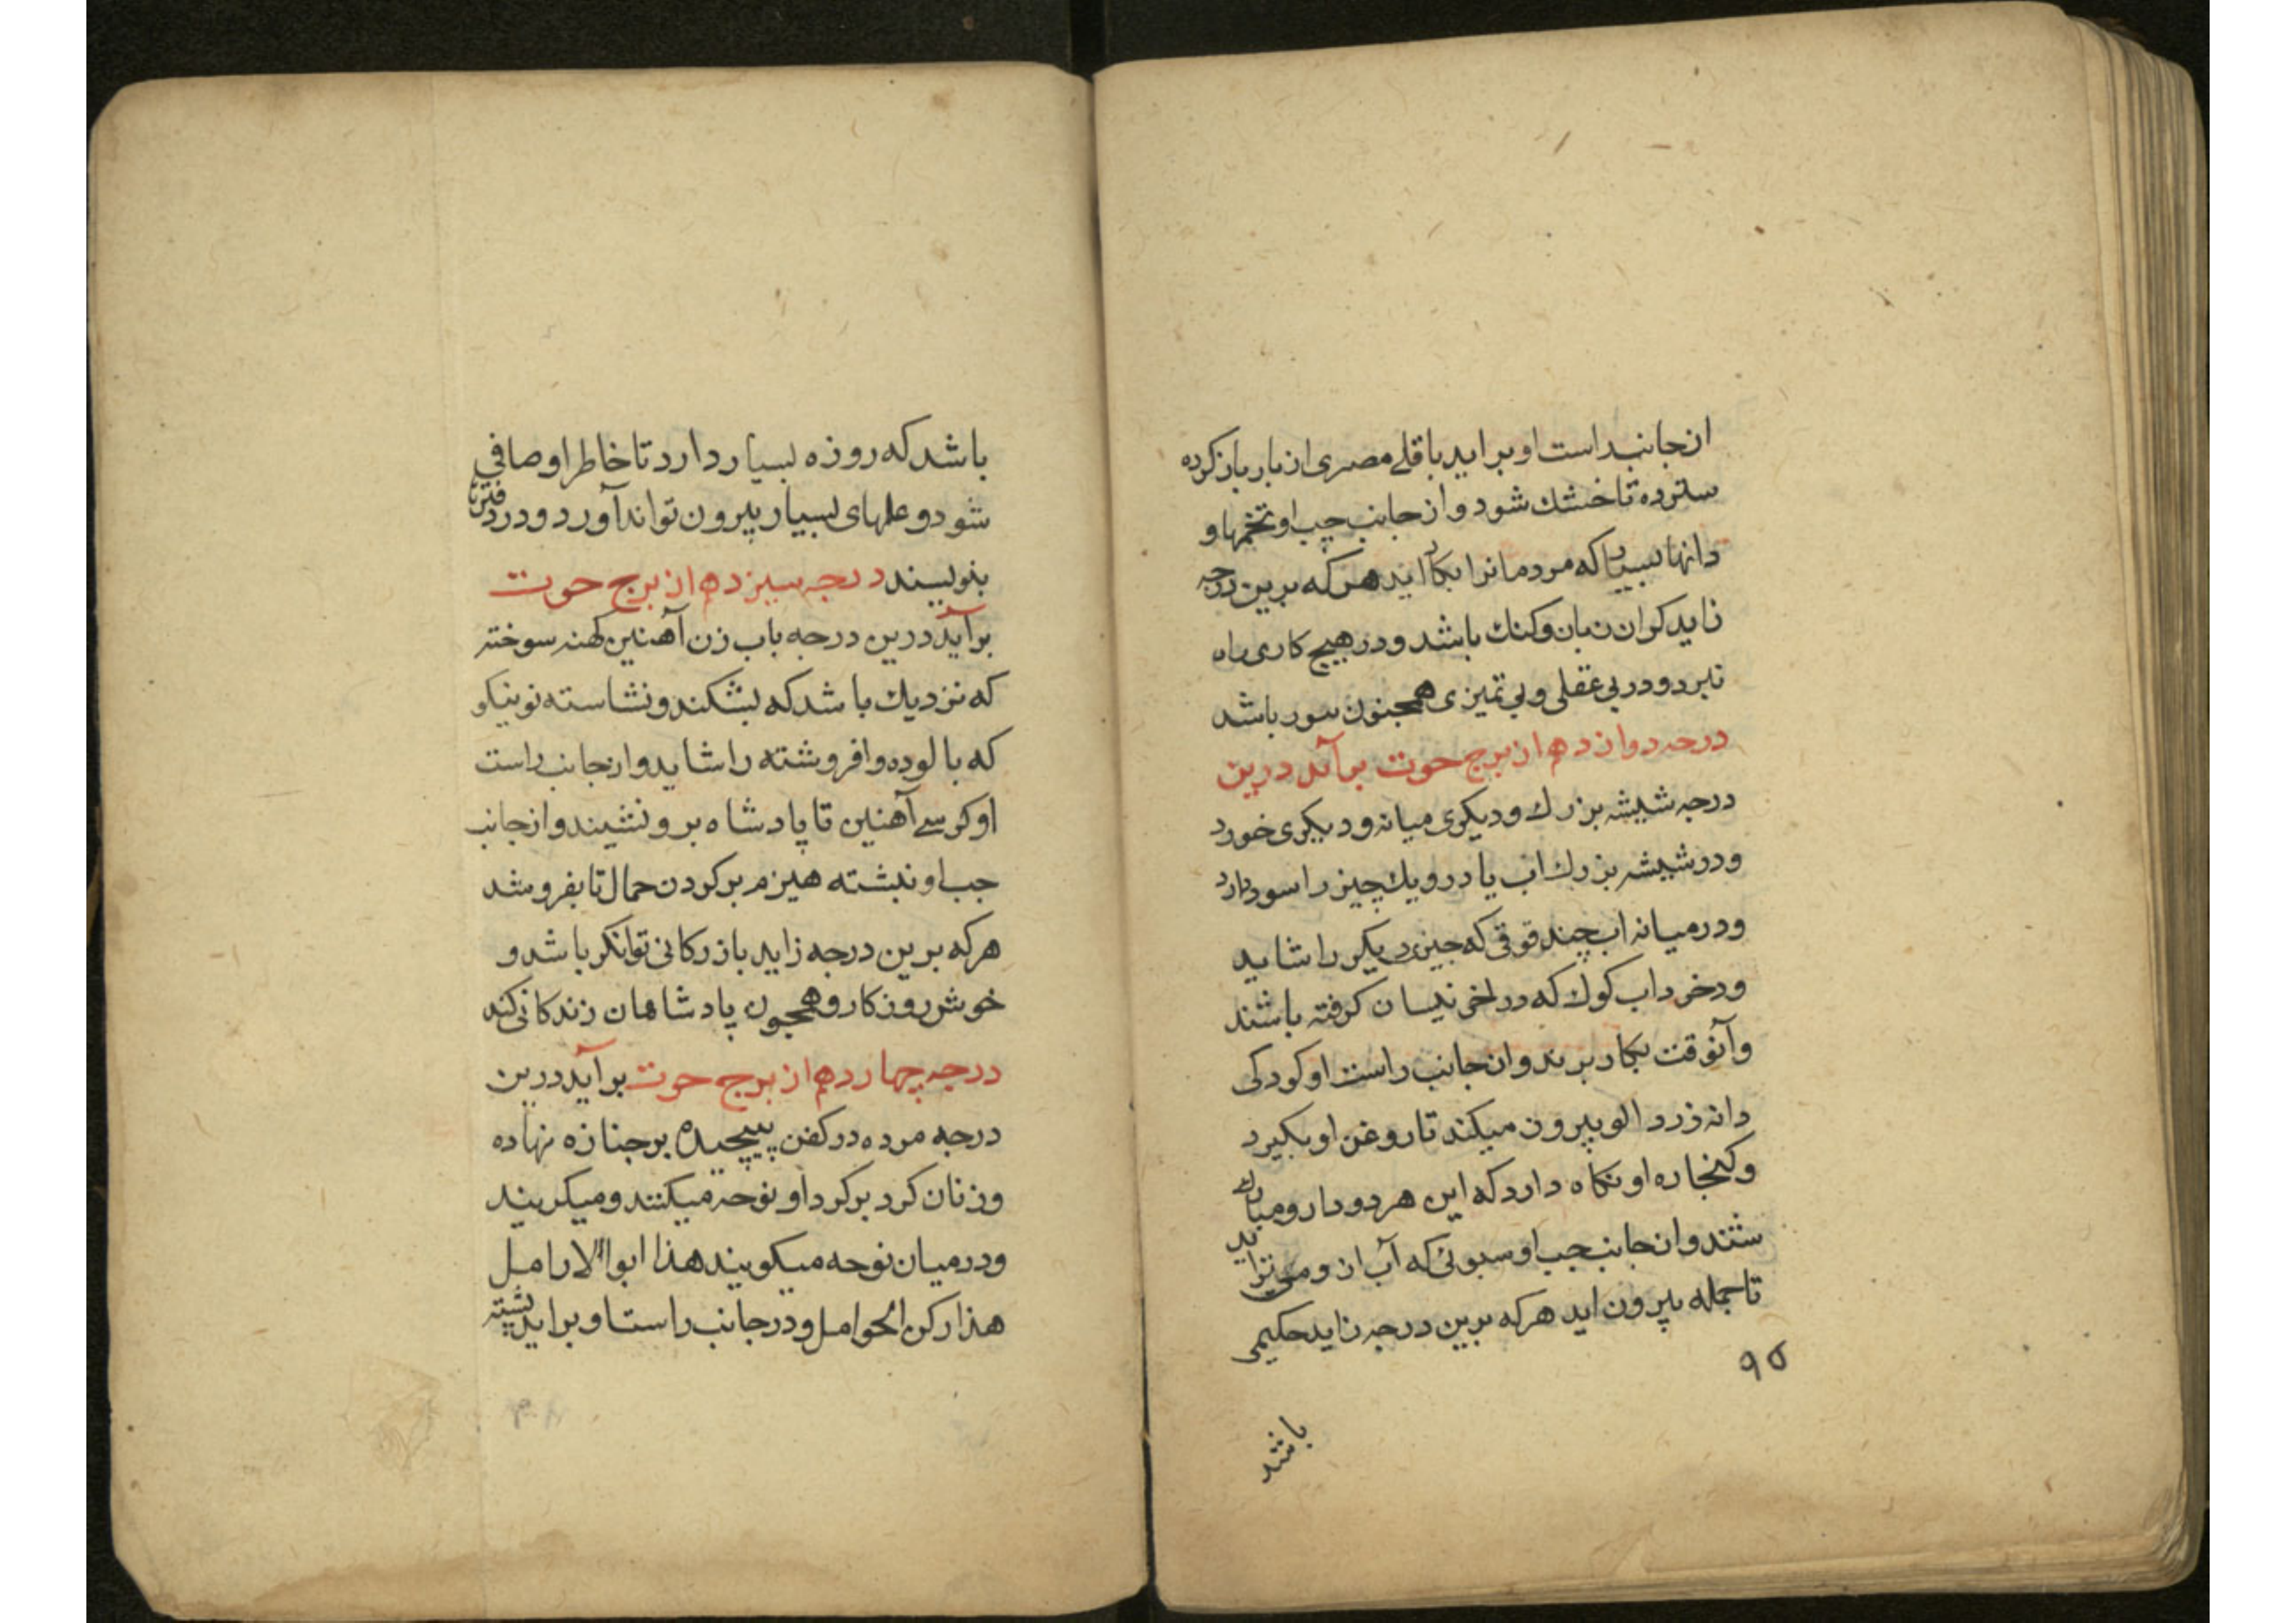 از جانب راست او برآید باقلے مصری از بار باز کرده
سترده تا خشك شود و از جانب چپ او تخمها و
دانها بسیار که مردمانرا بکار اید هر که برین درجه
زاید کران زبان و کنك باشد و در هیچ کاری راه
نبرد و در بی عقلی و بی تمیزی همچنون سور باشد
درجه دوازدهم از برج حوت برآید درین
درجه شیشه بزرك و دیکری میانه و دیکری خورد
و در شیشه بزرك اب یا درو یك چیز را سود دارد
و در میانه اب چند قوقی که چیز دیکر را شاید
و در خرد اب کوك که در اخر نیسان کرفته باشند
و آنوقت بکار برند و از جانب راست او کودکی
دانه زردالو بیرون میکند تا روغن او بکیرد
و کنجاره او نکاه دارد که این هر دو دارو مبارك
شند و از جانب چپ او سبوئی که آب از و می ترابد
تا جمله بیرون اید هر که برین درجه زاید حکیمی
۹۵
باشد
باشد که روزه بسیار دارد تا خاطر او صافی
شود و علمهای بسیار بیرون تواند آورد و در دفترها
بنویسند درجه سیزدهم از برج حوت
برآید درین درجه باب زن آهنین کهنه سوخته
که نزدیك باشد که بشکند و نشاسته نو نیکو
که بالوده و افروشته را شاید و از جانب راست
او کرسے آهنین تا پادشاه برو نشیند و از جانب
چپ او نبشته هیزم بر کردن حمال تا بفروشد
هر که برین درجه زاید بازرکانی توانکر باشد و
خوش روزکار و همچون پادشاهان زندکانی کند
درجه چهاردهم از برج حوت برآید درین
درجه مرده در کفن پیچیده بر جنازه نهاده
و زنان کرد بر کرد او نوحه میکنند و میکریند
و در میان نوحه میکویند هذا ابو الارامل
هذا رکن الحوامل و در جانب راست او براید پشته